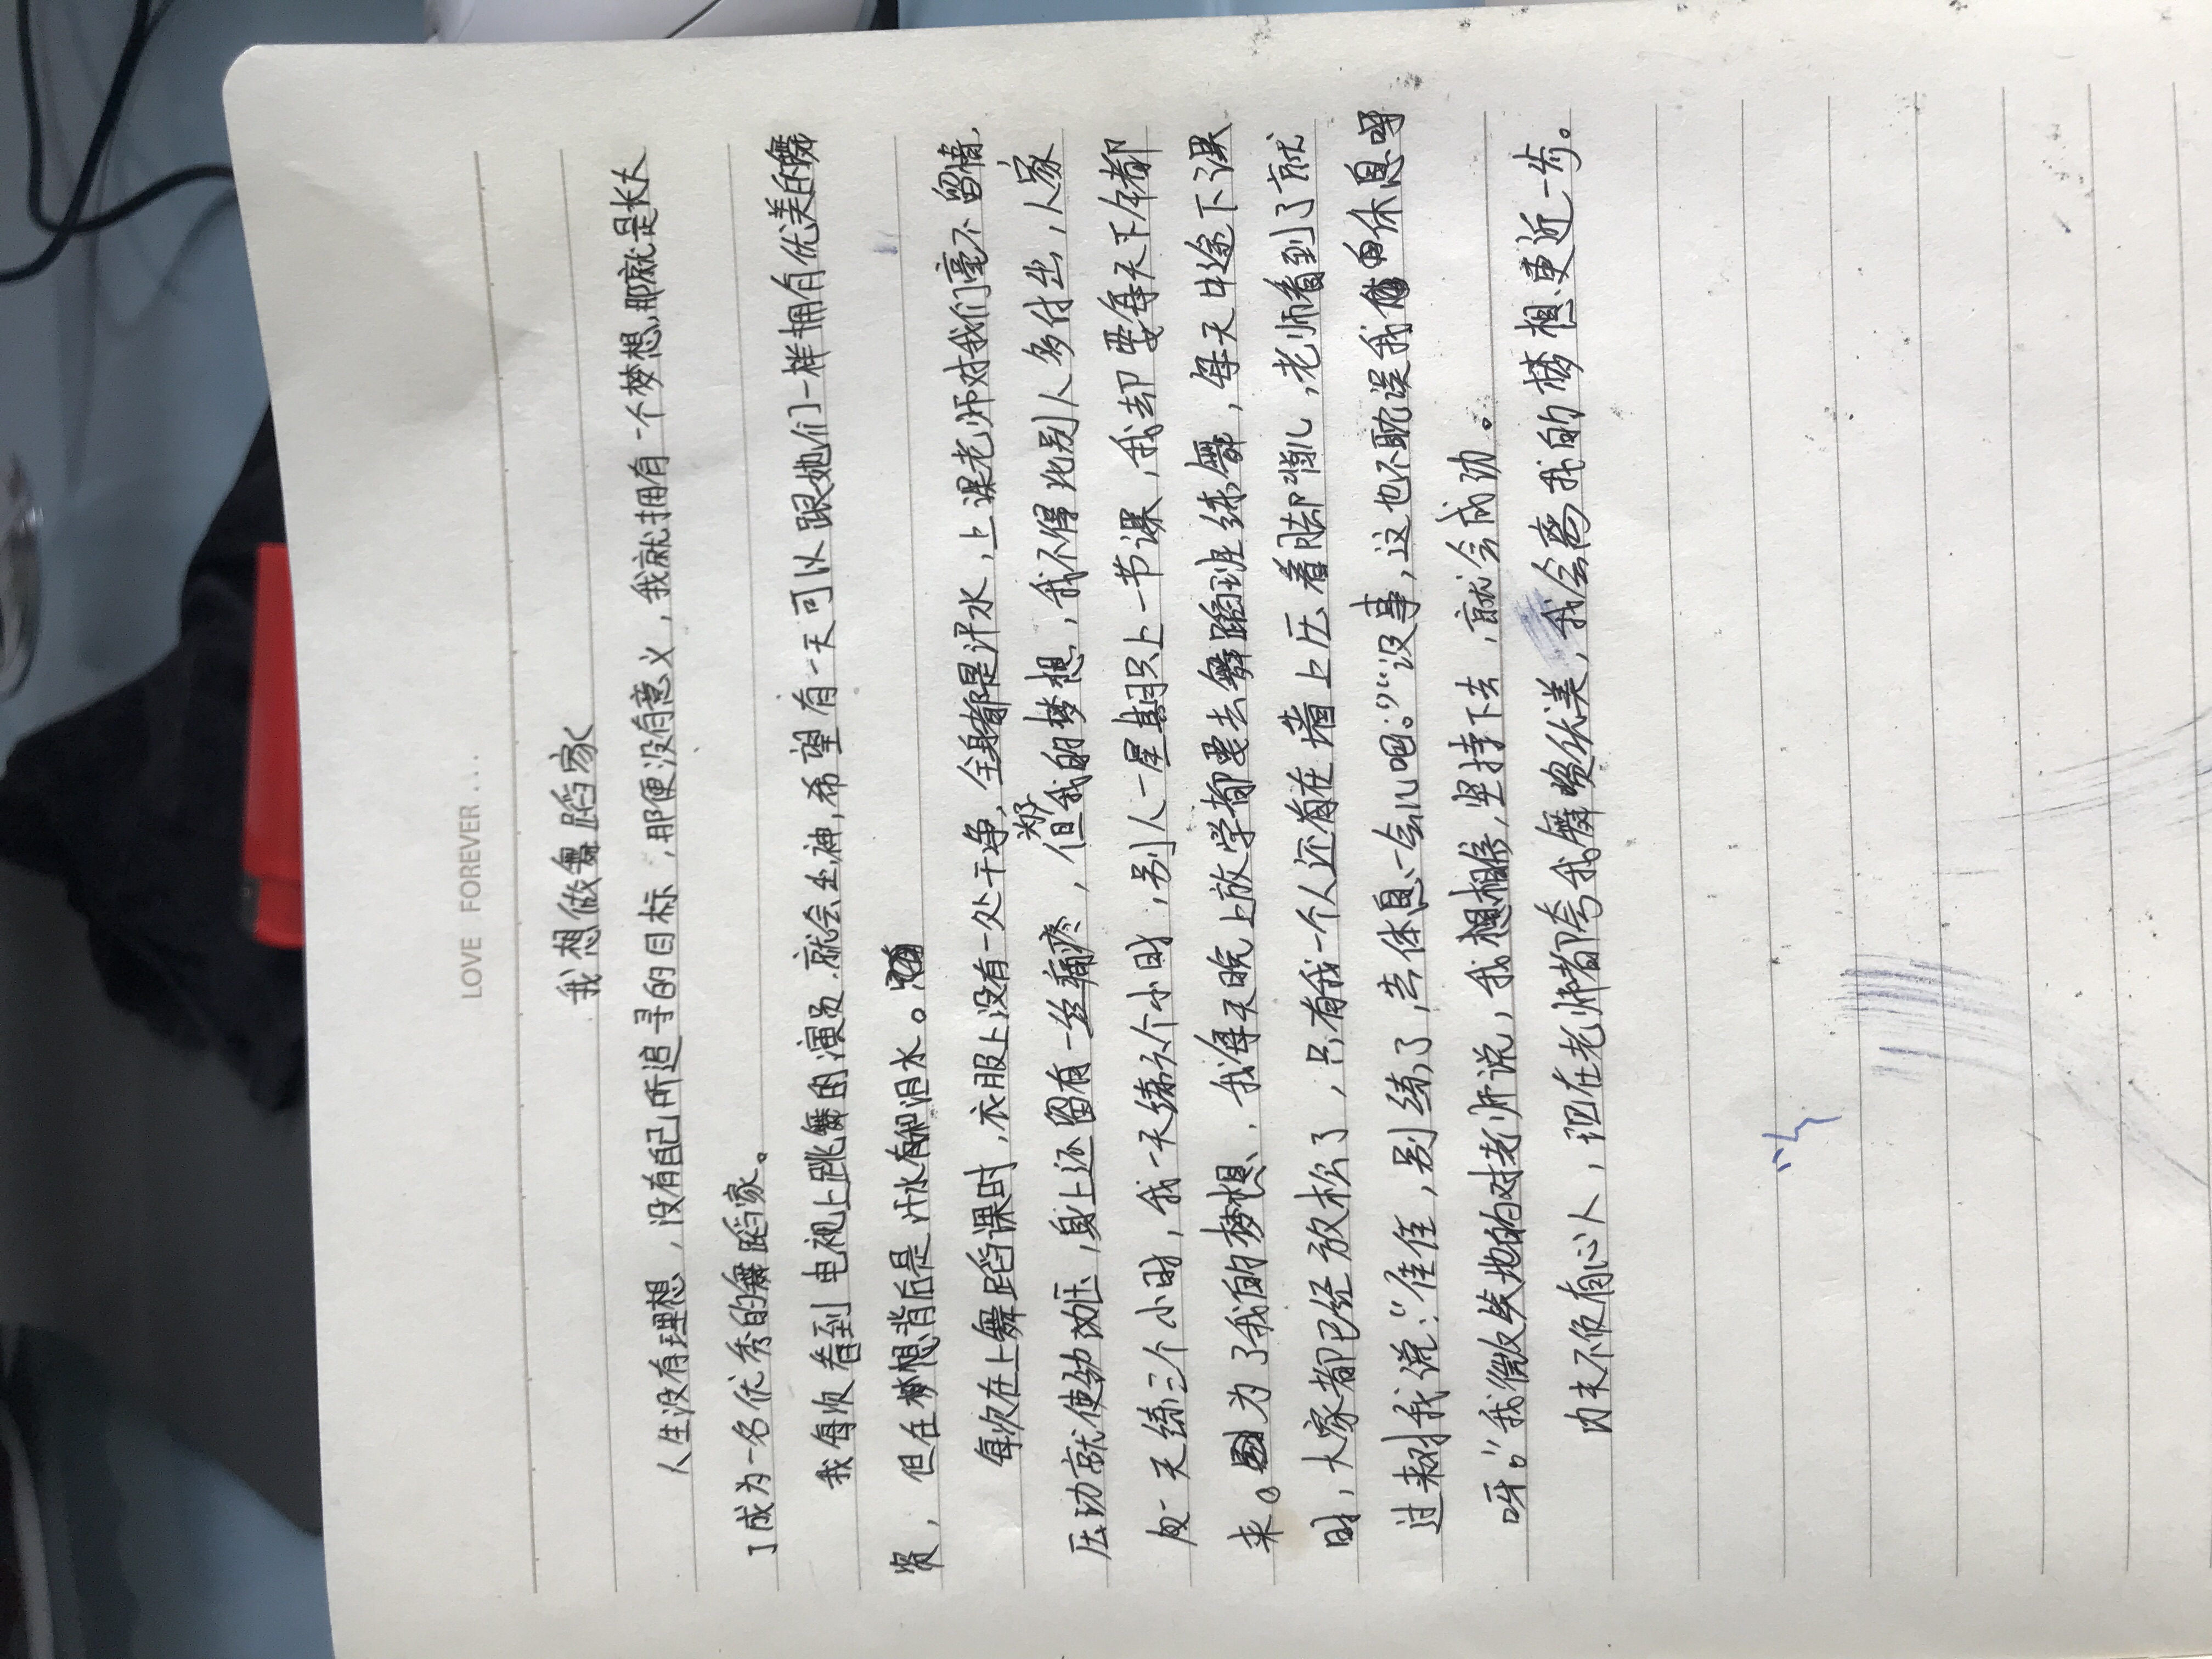 LOVE FOREVER....
我想做舞蹈家
人生没有理想，没有自己所追寻的目标，那便没有意义，我就拥有一个梦想，那就是长大
了成为一名优秀的舞蹈家。
我每次看到电视上跳舞的演员，就会出神，希望有一天可以跟她们一样拥有优美的舞
姿，但在梦想背后是汗水和泪水。
每次在上舞蹈课时，衣服上没有一处干净，全身都是汗水，上课老师对我们毫不留情，
压功就使劲压，身上还留有一丝痛疼，但为了我的梦想，我不得比别人多付出，人家
一天练三个小时，我一天练六个小时，别人一星期只上一节课，我却要每天下午都
来。为了我的梦想，我每天晚上放学都要去舞蹈班练舞，每天中途下课
时，大家都已经放松了，只有我一个人还在墙上压着脚背儿，老师看到了就
过来对我说：“佳佳，别练了，去休息一会儿吧。”“没事，这也不耽误我休息呀
呀。”我微笑地对老师说，我相信，坚持下去，就会成功。
功夫不负有心人，现在老师都夸我舞姿优美，我会离我的梦想更近一步。